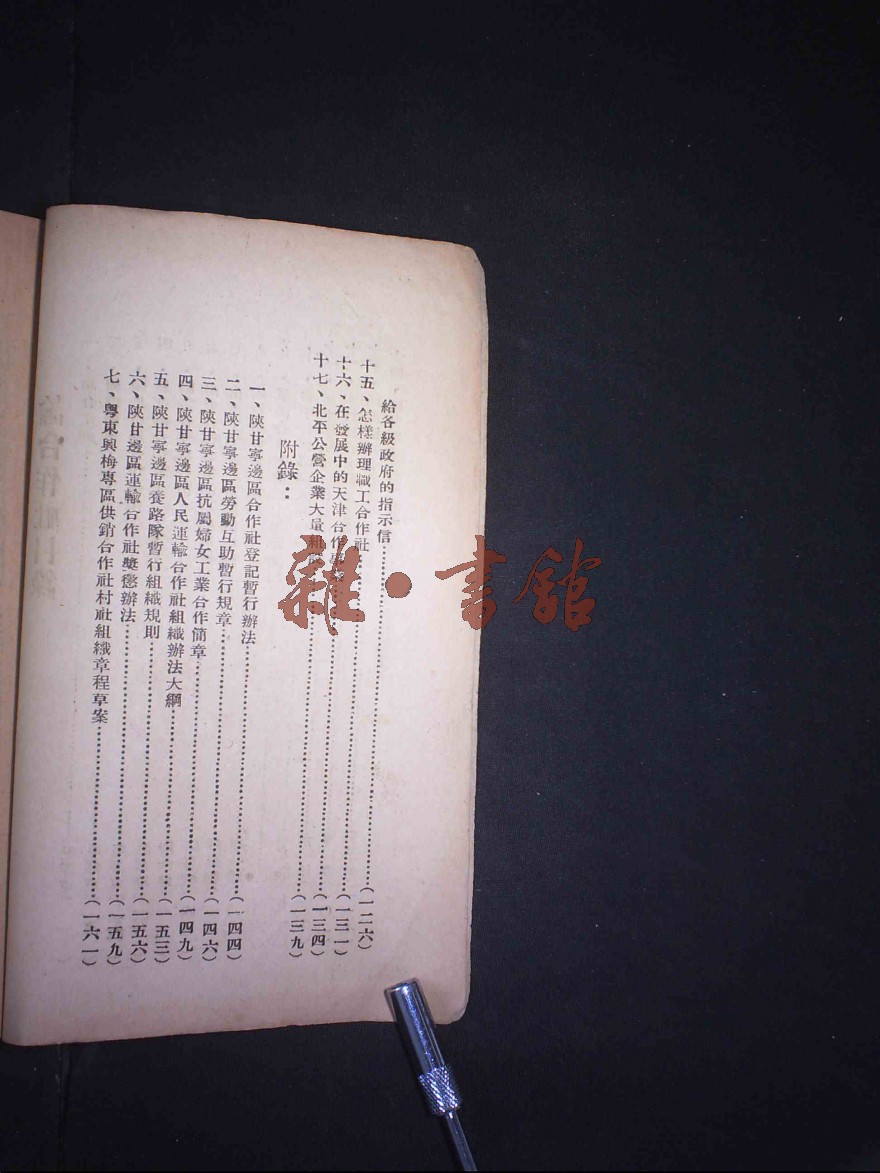 給各級政府的指示信……(一二六)
十五、怎樣辦理職工合作社……(一三一)
十六、在發展中的天津合作……(一三四)
十七、北平公營企業大量組……(一三九)
附錄：
一、陝甘寧邊區合作社登記暫行辦法……(一四四)
二、陝甘寧邊區勞動互助暫行規章……(一四六)
三、陝甘寧邊區抗屬婦女工業合作簡章……(一四九)
四、陝甘寧邊區人民運輸合作社組織辦法大綱……(一五三)
五、陝甘寧邊區養路隊暫行組織規則……(一五六)
六、陝甘邊區運輸合作社獎懲辦法……(一五九)
七、粵東興梅專區供銷合作社村社組織章程草案……(一六一)
雜·書館